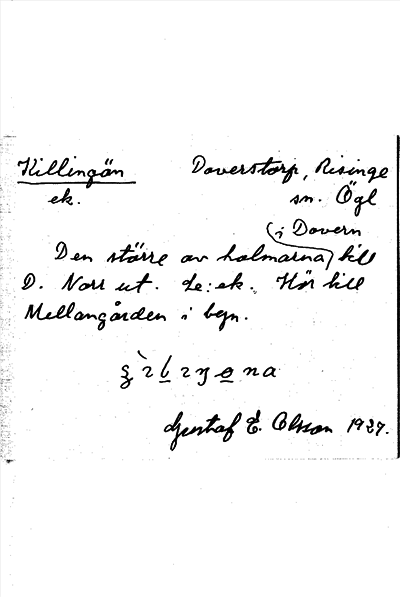 Killingön Doverstorp, Risinge
ek. sn. Ögl
(i Dovern
Den större av holmarna) till
D. Norr ut. Le: ek. Hör till
Mellangården i byn.
Gustaf E. Olsson 1927.